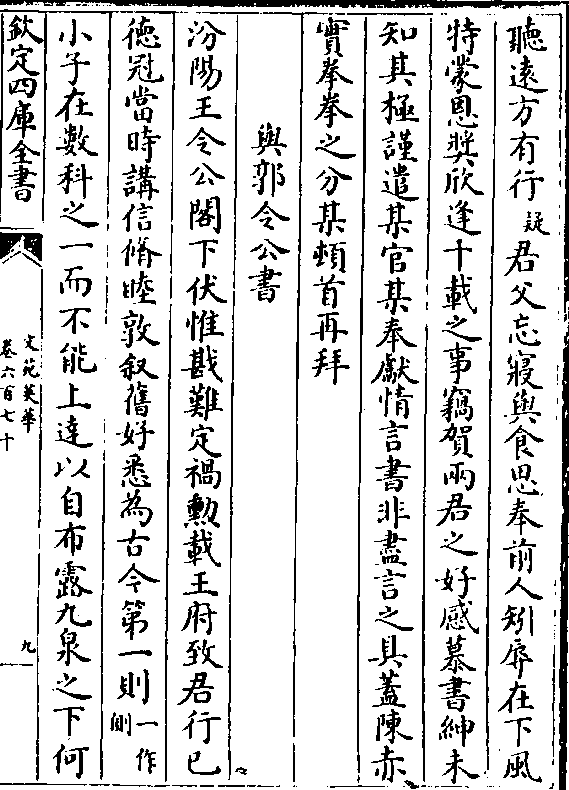 聽遠方有行疑君父忘寢與食思奉前人矧辱在下風
特蒙恩奬欣逢十載之事竊賀兩君之好感慕書紳未
知其極謹遣某官某奉獻情言書非盡言之具蓋陳赤
實拳拳之分某頓首再拜
與郭令公書
汾陽王令公閣下伏惟戡難定禍勲載王府致君行已
德冠當時講信脩睦敦叙舊好悉為古今第一則一作剛
小子在數科之一而不能上達以自布露九泉之下何
欽定四庫全書
文苑英華
卷六百七十
九